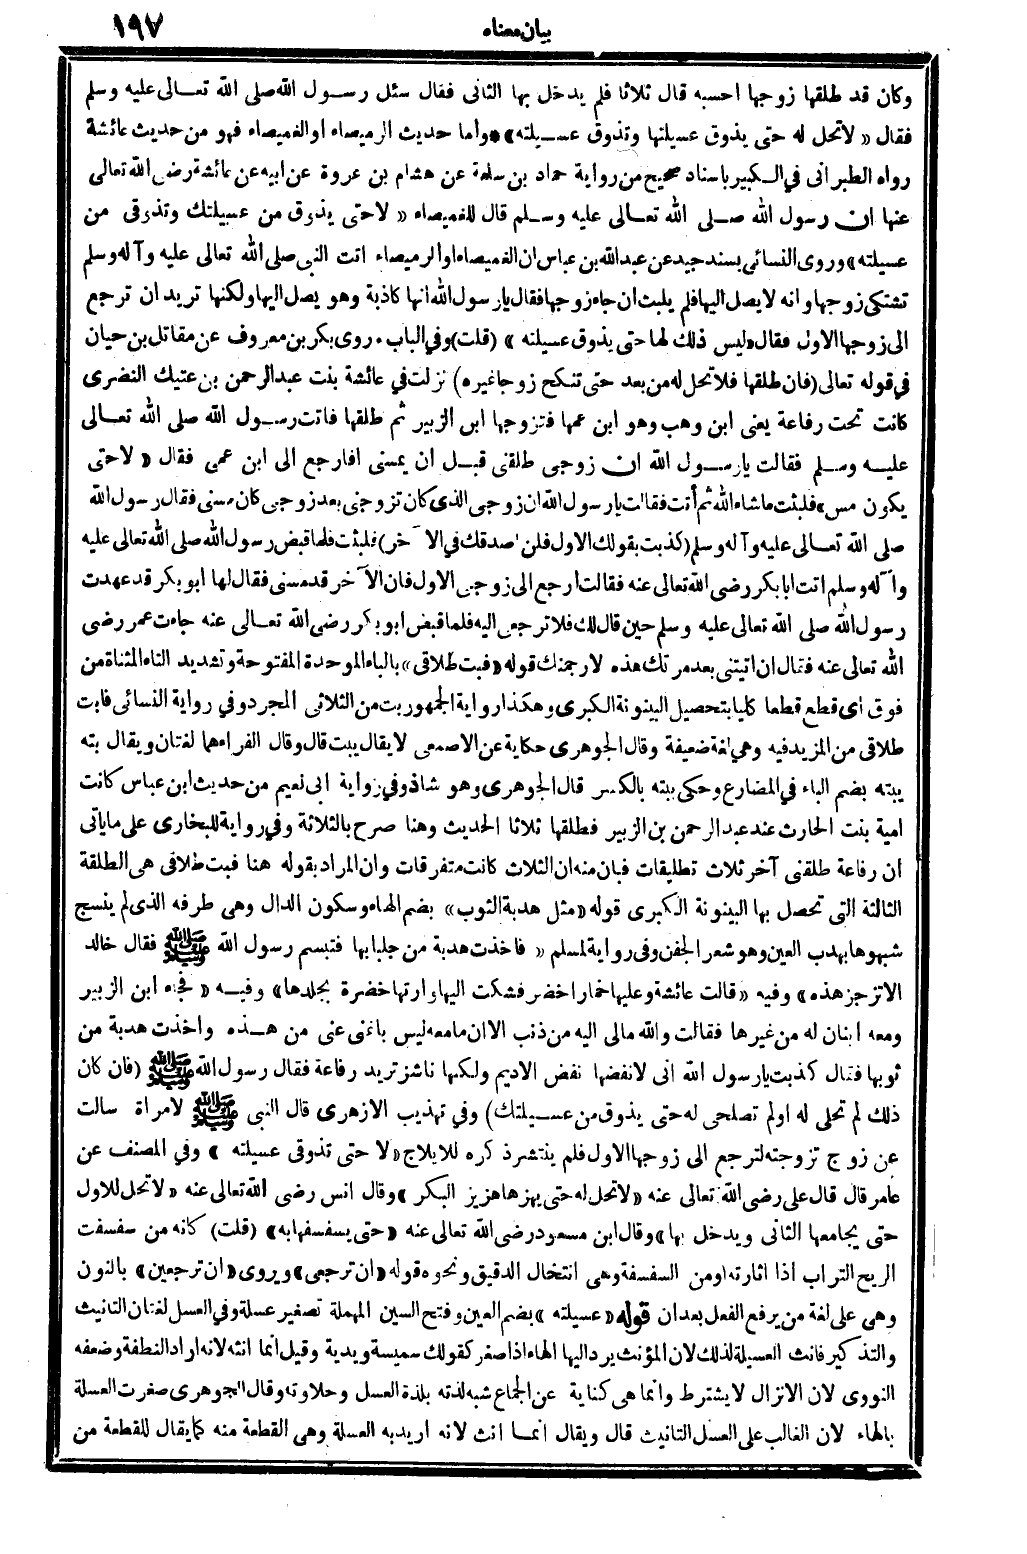 بيان معناه ١٩٧
وكان قد طلقها زوجها احسبه قال ثلاثا فلم يدخل بها الثانى فقال سئل رسول الله صلى الله تعالى عليه وسلم
فقال « لا تحل له حتى يذوق عسيلتها وتذوق عسيلته » * وأما حديث الرميصاء او الغميصاء فهو من حديث عائشة
رواه الطبرانى في الكبير باسناد صحيح من رواية حماد بن سلمة عن هشام بن عروة عن ابيه عن عائشة رضى الله تعالى
عنها ان رسول الله صلى الله تعالى عليه وسلم قال للغميصاء « لا حتى يذوق من عسيلتك وتذوقى من
عسيلته » وروى النسائى بسند جيد عن عبد الله بن عباس ان الغميصاء او الرميصاء اتت النبى صلى الله تعالى عليه وآله وسلم
تشتكى زوجها وانه لا يصل اليها فلم يلبث ان جاء زوجها فقال يارسول الله انها كاذبة وهو يصل اليها ولكنها تريد ان ترجع
الى زوجها الاول فقال « ليس ذلك لها حتى يذوق عسيلته » (قلت) وفي الباب . روى بكر بن معروف عن مقاتل بن حيان
في قوله تعالى (فان طلقها فلا تحل له من بعد حتى تنكح زوجا غيره) نزلت في عائشة بنت عبد الرحمن بن عتيك النضرى
كانت تحت رفاعة يعنى ابن وهب وهو ابن عمها فتزوجها ابن الزبير ثم طلقها فاتت رسول الله صلى الله تعالى
عليه وسلم فقالت يارسول الله ان زوجى طلقنى قبل ان يمسنى افارجع الى ابن عمى فقال « لا حتى
يكون مس » فلبثت ماشاء الله ثم أتت فقالت يارسول الله ان زوجى الذى كان تزوجنى بعد زوجى كان مسنى فقال رسول الله
صلى الله تعالى عليه وآله وسلم (كذبت بقولك الاول فلن اصدقك في الآخر) فلبثت فلما قبض رسول الله صلى الله تعالى عليه
وآله وسلم اتت ابابكر رضى الله تعالى عنه فقالت ارجع الى زوجى الاول فان الآخر قد مسنى فقال لها ابو بكر قد عهدت
رسول الله صلى الله تعالى عليه وسلم حين قال لك فلا ترجعى اليه فلما قبض ابو بكر رضى الله تعالى عنه جاءت عمر رضى
الله تعالى عنه فقال ان اتيتنى بعد مرتك هذه لارجمنك قوله « فبت طلاقى » بالباء الموحدة المفتوحة وتشديد التاء المثناة من
فوق أى قطع قطعا كليا بتحصيل البينونة الكبرى وهكذا رواية الجمهور بت من الثلاثى المجرد وفي رواية النسائى فابت
طلاقى من المزيد فيه وهى لغة ضعيفة وقال الجوهرى حكاية عن الاصمعى لا يقال يبت قال وقال الفراء هما لغتان ويقال بته
يبته بضم الباء في المضارع وحكى يبته بالكسر قال الجوهرى وهو شاذ وفي رواية ابى نعيم من حديث ابن عباس كانت
امية بنت الحارث عند عبد الرحمن بن الزبير فطلقها ثلاثا الحديث وهنا صرح بالثلاثة وفي رواية للبخارى على ماياتى
أن رفاعة طلقنى آخر ثلاث تطليقات فبان منه ان الثلاث كانت متفرقات وان المراد بقوله هنا فبت طلاقى هى الطلقة
الثالثة التى تحصل بها البينونة الكبرى قوله « مثل هدبة الثوب » بضم الهاء وسكون الدال وهى طرفه الذى لم ينسج
شبهوها بهدب العين وهو شعر الجفن وفى رواية لمسلم « فاخذت هدبة من جلبابها فتبسم رسول الله ﷺ فقال خالد
الا تزجر هذه » وفيه « قالت عائشة وعليها خمار اخضر فشكت اليها وارتها خضرة بجلدها » وفيه « فجاء ابن الزبير
ومعه ابنان له من غيرها فقالت والله مالى اليه من ذنب الا ان مامعه ليس باغنى عنى من هذه واخذت هدبة من
ثوبها فقال كذبت يارسول الله انى لانفضها نفض الاديم ولكنها ناشز تريد رفاعة فقال رسول الله ﷺ (فان كان
ذلك لم تحلى له اولم تصلحى له حتى يذوق من عسيلتك) وفي تهذيب الازهرى قال النبى ﷺ لامراة سالت
عن زوج تزوجته لترجع الى زوجها الاول فلم ينتشر ذكره للايلاج « لا حتى تذوقى عسيلته » وفي المصنف عن
عامر قال قال على رضى الله تعالى عنه « لا تحل له حتى يهزها هزيز البكر » وقال انس رضى الله تعالى عنه « لا تحل للاول
حتى يجامعها الثانى ويدخل بها » وقال ابن مسعود رضى الله تعالى عنه « حتى يسفسفها به » (قلت) كانه من سفسفت
الريح التراب اذا اثارته او من السفسفة وهى انتخال الدقيق ونحوه قوله « ان ترجعى » ويروى « ان ترجعين » بالنون
وهى على لغة من يرفع الفعل بعد ان قوله « عسيلته » بضم العين وفتح السين المهملة تصغير عسلة وفي العسل لغتان التانيث
والتذكير فانث العسيلة لذلك لان المؤنث يرد اليها الهاء اذا صغر كقولك سميسة ويدية وقيل انما انثه لانه اراد النطفة وضعفه
النووى لان الانزال لا يشترط وانما هى كناية عن الجماع شبه لذته بلذة العسل وحلاوته وقال الجوهرى صغرت العسلة
بالهاء لان الغالب على العسل التانيث قال ويقال انما انث لانه اريد به العسلة وهى القطعة منه كما يقال للقطعة من